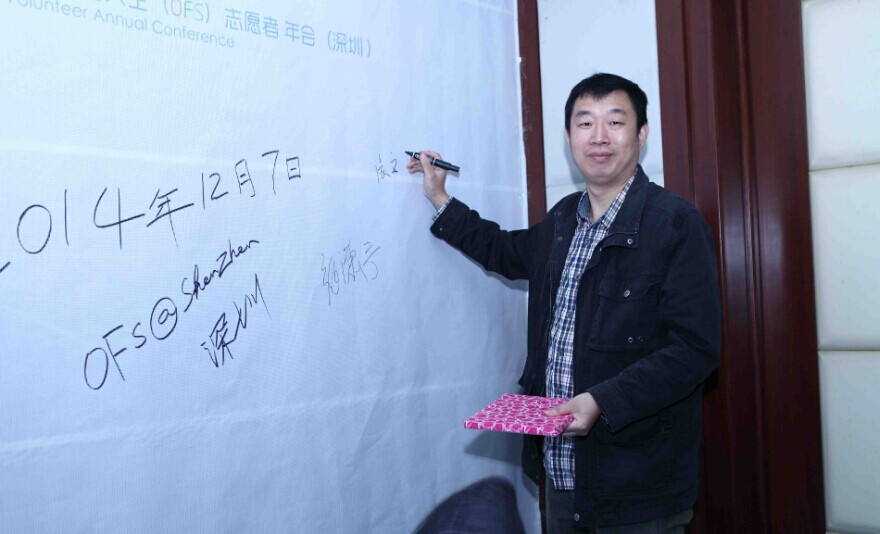 (OFS) 志愿者 年会 (深圳)
Volunteer Annual Conference
2014年12月7日
OFS@Shenzhen
深圳